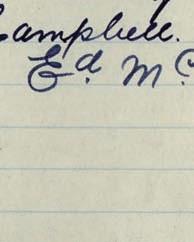 Campbell.
Ed. Mc.